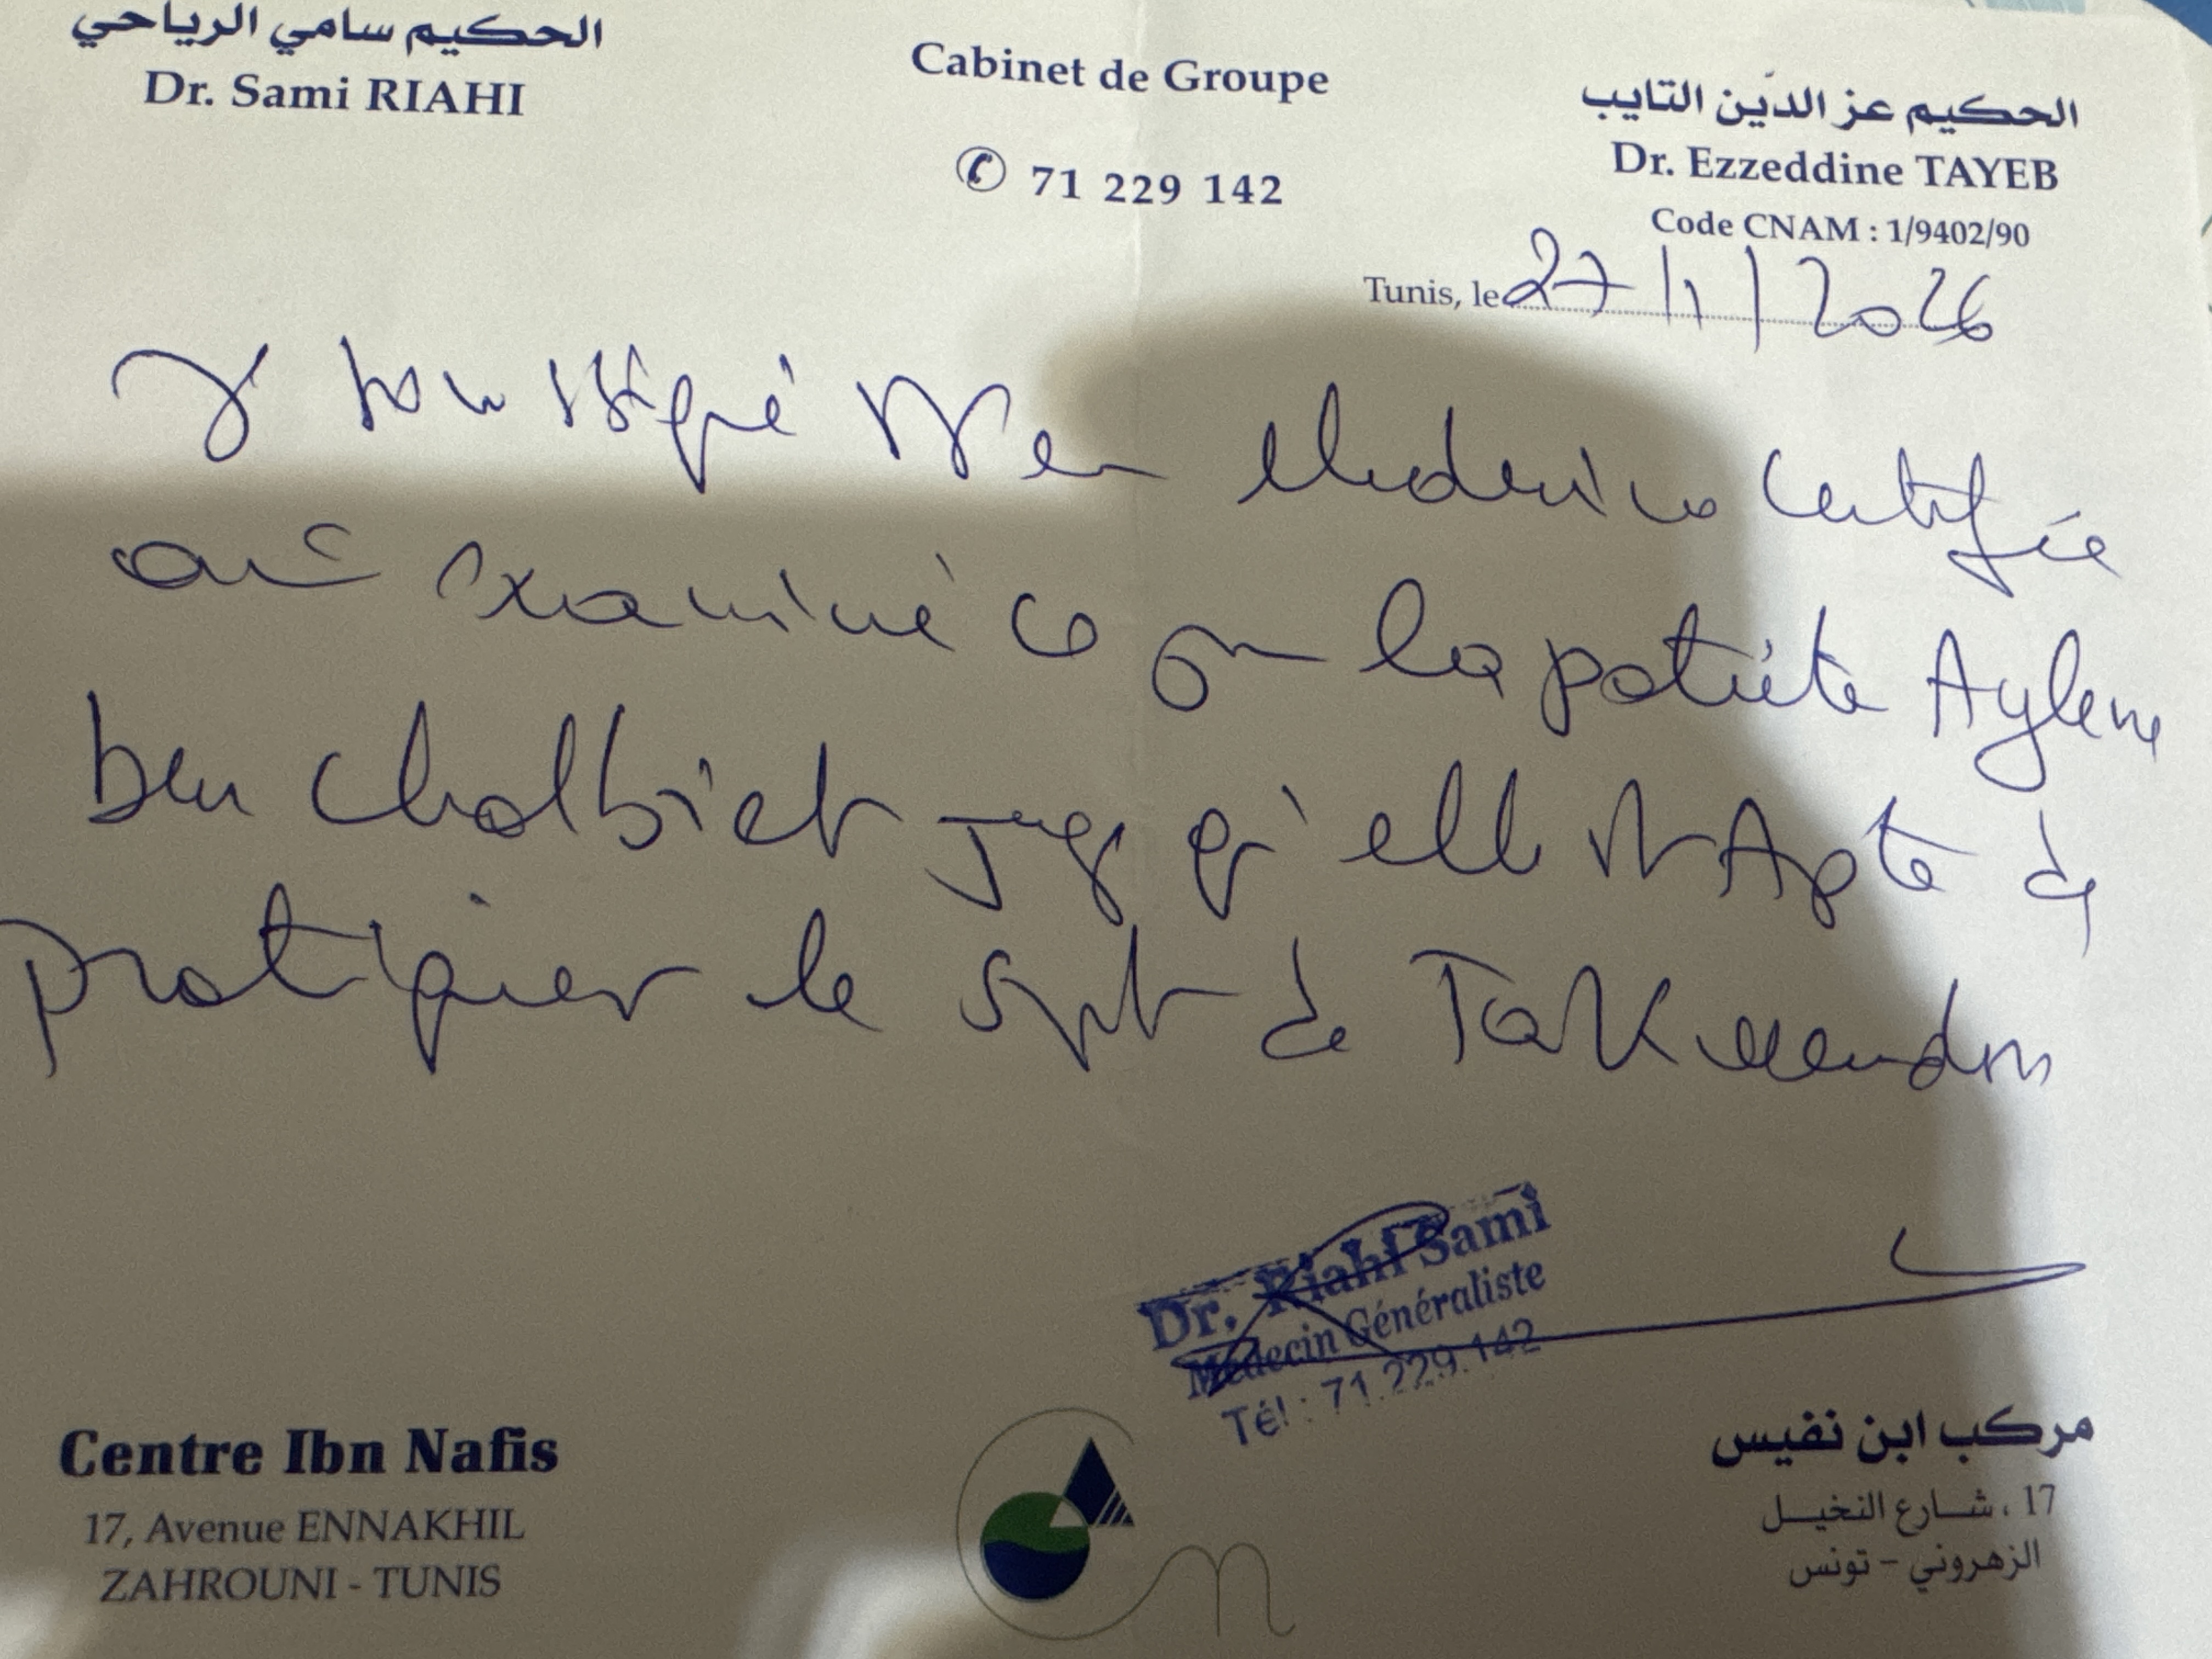 الحكيم سامي الرياحي
Dr. Sami RIAHI
Cabinet de Groupe
✆ 71 229 142
الحكيم عز الدين التايب
Dr. Ezzeddine TAYEB
Code CNAM : 1/9402/90
Tunis, le 27/1/2026
Je soussigné Dr en Medecine Certifie
avoir examiné ce jour la patiente Aylem
ben chalbi et juge qu'elle est Apte de
pratiquer le sport de
Dr. Riahi Sami
Médecin Généraliste
Tél : 71.229.142
Centre Ibn Nafis
17, Avenue ENNAKHIL
ZAHROUNI - TUNIS
مركب ابن نفيس
17، شارع النخيل
الزهروني - تونس